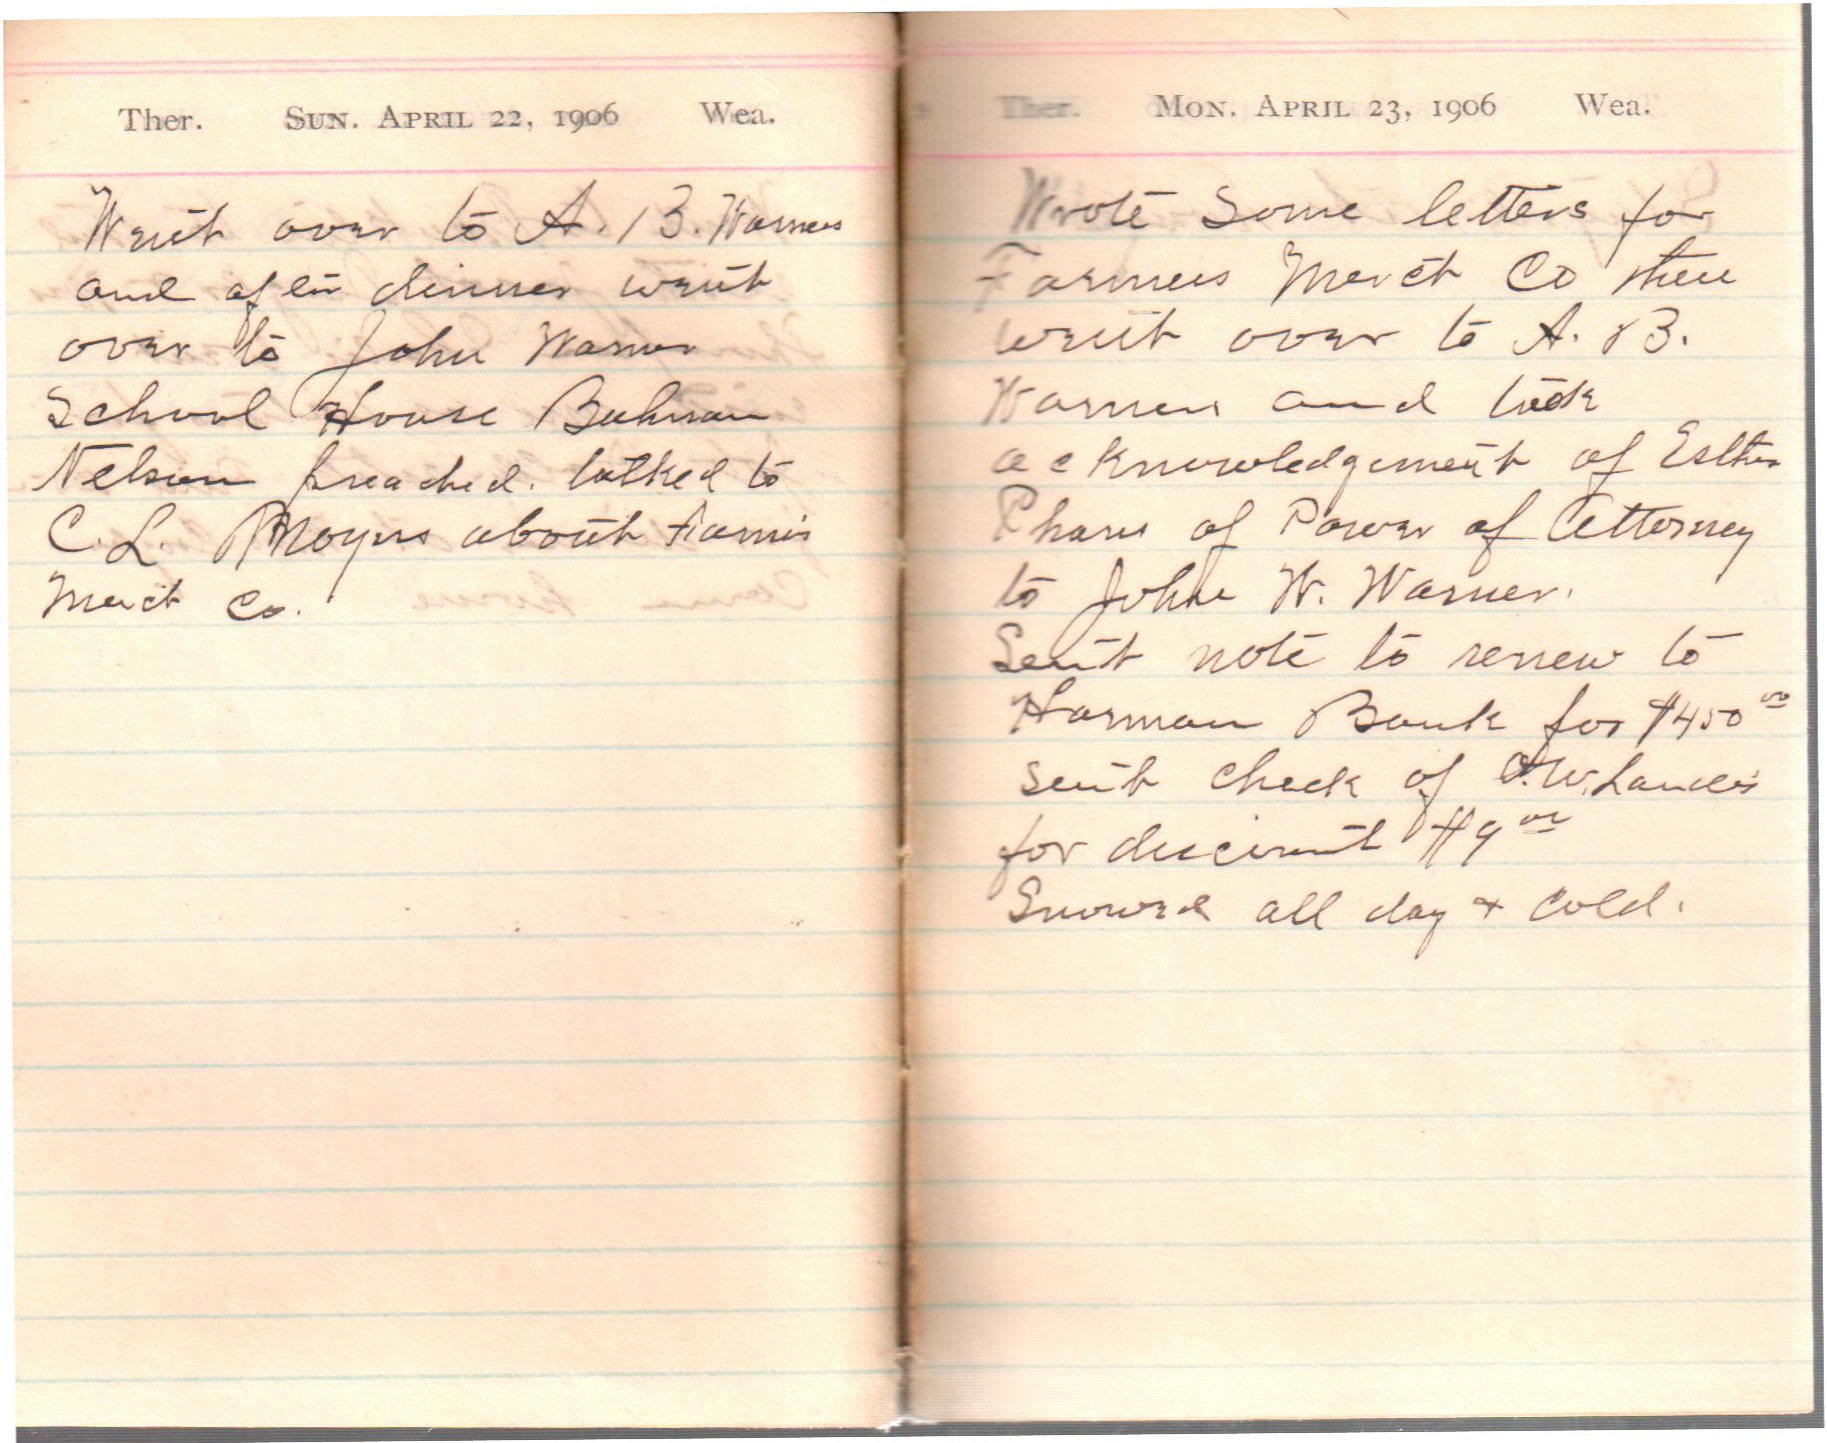 Ther. Sun. April 22, 1906 Wea.
Went over to A. B. Warners
and after dinner went
over to John Warner
School House Bahman
Nelson preached. talked to
C. L. Moyers about Farmers
Merct Co.
Ther. Mon. April 23, 1906 Wea.
Wrote some letters for
Farmers Merct Co then
went over to A. B.
Warners and took
acknowledgement of Esther
Phares of Power of Attorney
to John W. Warner.
Sent note to renew to
Harman Bank for $450 00
sent check of O. W. Landes
for discount $9 00
Snowed all day & cold.